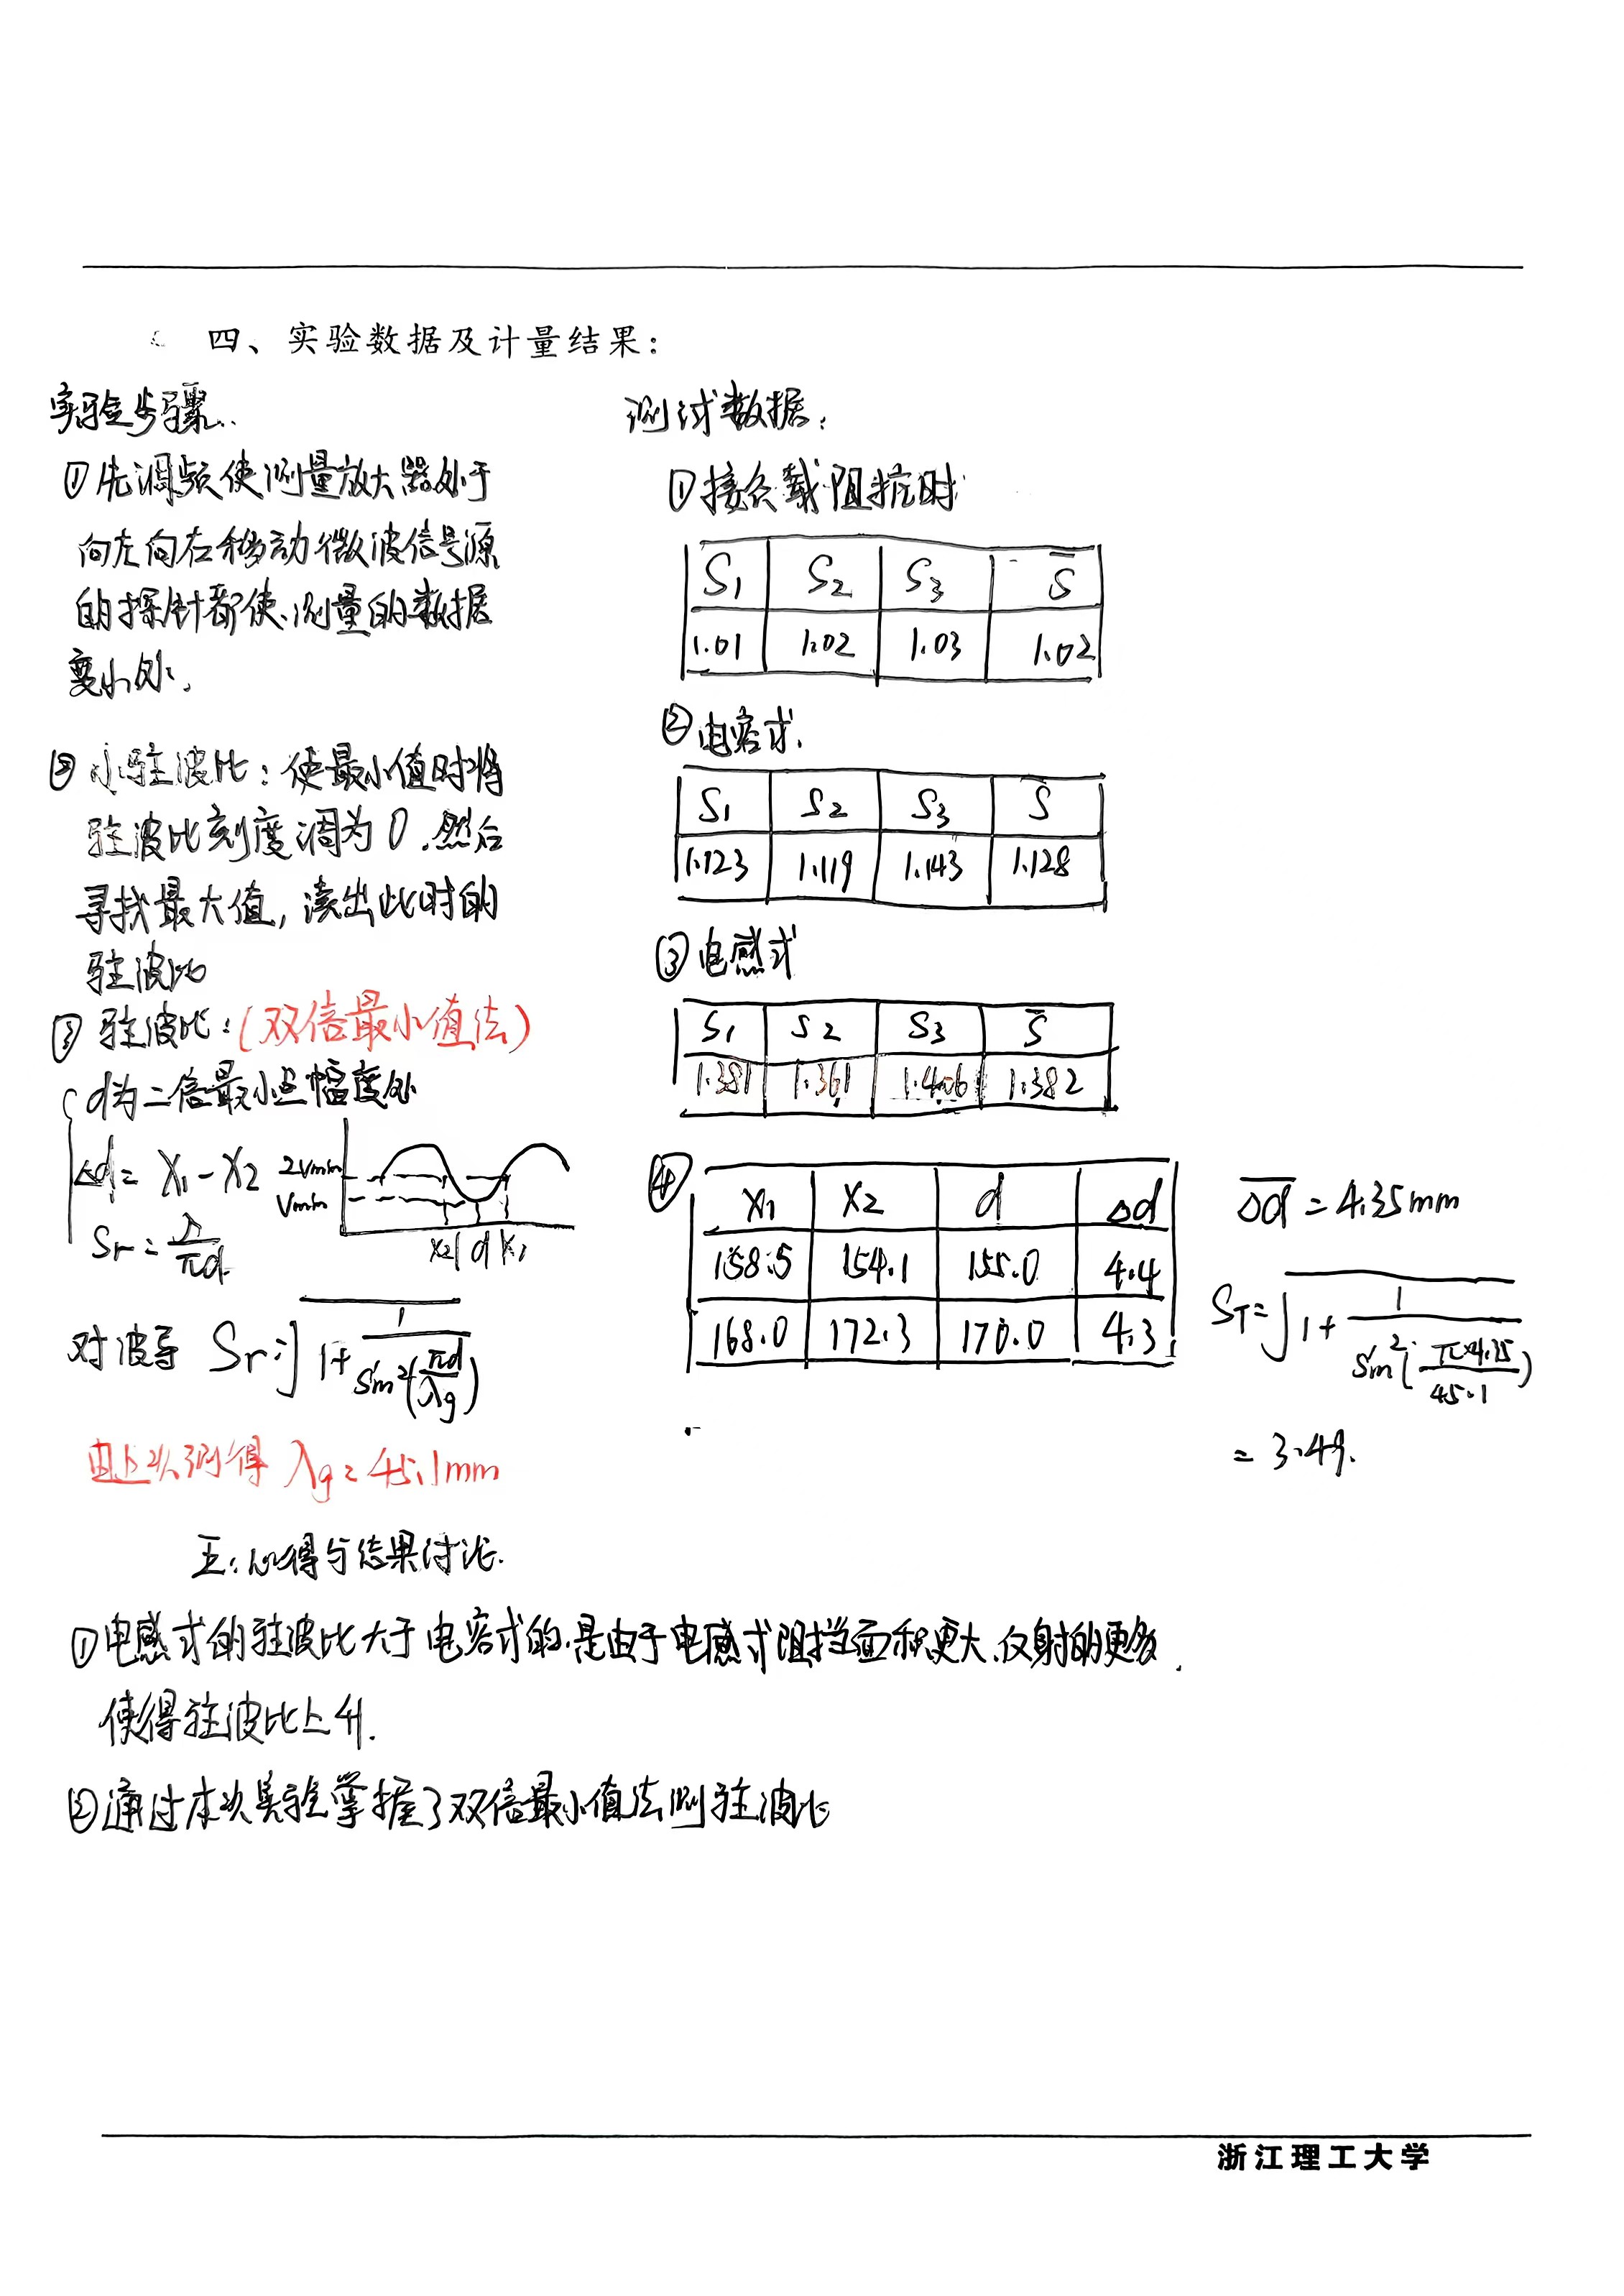 四、实验数据及计量结果：
实验步骤：
①先调频使测量放大器处于
向左向右移动微波信号源
的探针都使测量的数据
变小处.
②小驻波比：使最小值时将
驻波比刻度调为0.然后
寻找最大值，读出此时的
驻波比
③驻波比：(双倍最小值法)
d为二倍最小点幅度处
Δd= X₁-X₂
2Vmin
Vmin
X₂ d X₁
Sr = λ/πd
对波导 Sr = √(1+1/sin²(πd/λg))
由上次测得 λg=45.1mm
测试数据：
①接负载阻抗时
S₁ S₂ S₃ S̄
1.01 1.02 1.03 1.02
②电容式.
S₁ S₂ S₃ S̄
1.123 1.119 1.143 1.128
③电感式
S₁ S₂ S₃ S̄
1.381 1.361 1.406 1.382
④
X₁ X₂ d Δd
158.5 154.1 155.0 4.4
168.0 172.3 170.0 4.3
Δd̄ = 4.35mm
Sr=√(1+1/sin²(π×4.35/45.1))
= 3.49.
五：心得与结果讨论.
①电感式的驻波比大于电容式的.是由于电感式阻挡面积更大.反射的更多.
使得驻波比上升.
②通过本次实验掌握了双倍最小值法测驻波比
浙江理工大学